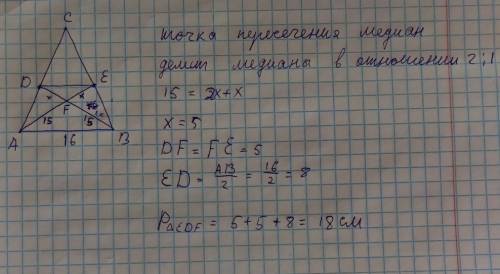 C
точка пересечения медиан
делит медианы в отношении 2:1
D E
x x
F
15 15
A 16 B
15 = 2x+x
x = 5
DF = FE = 5
ED = AB/2 = 16/2 = 8
P△EDF = 5+5+8 = 18 см